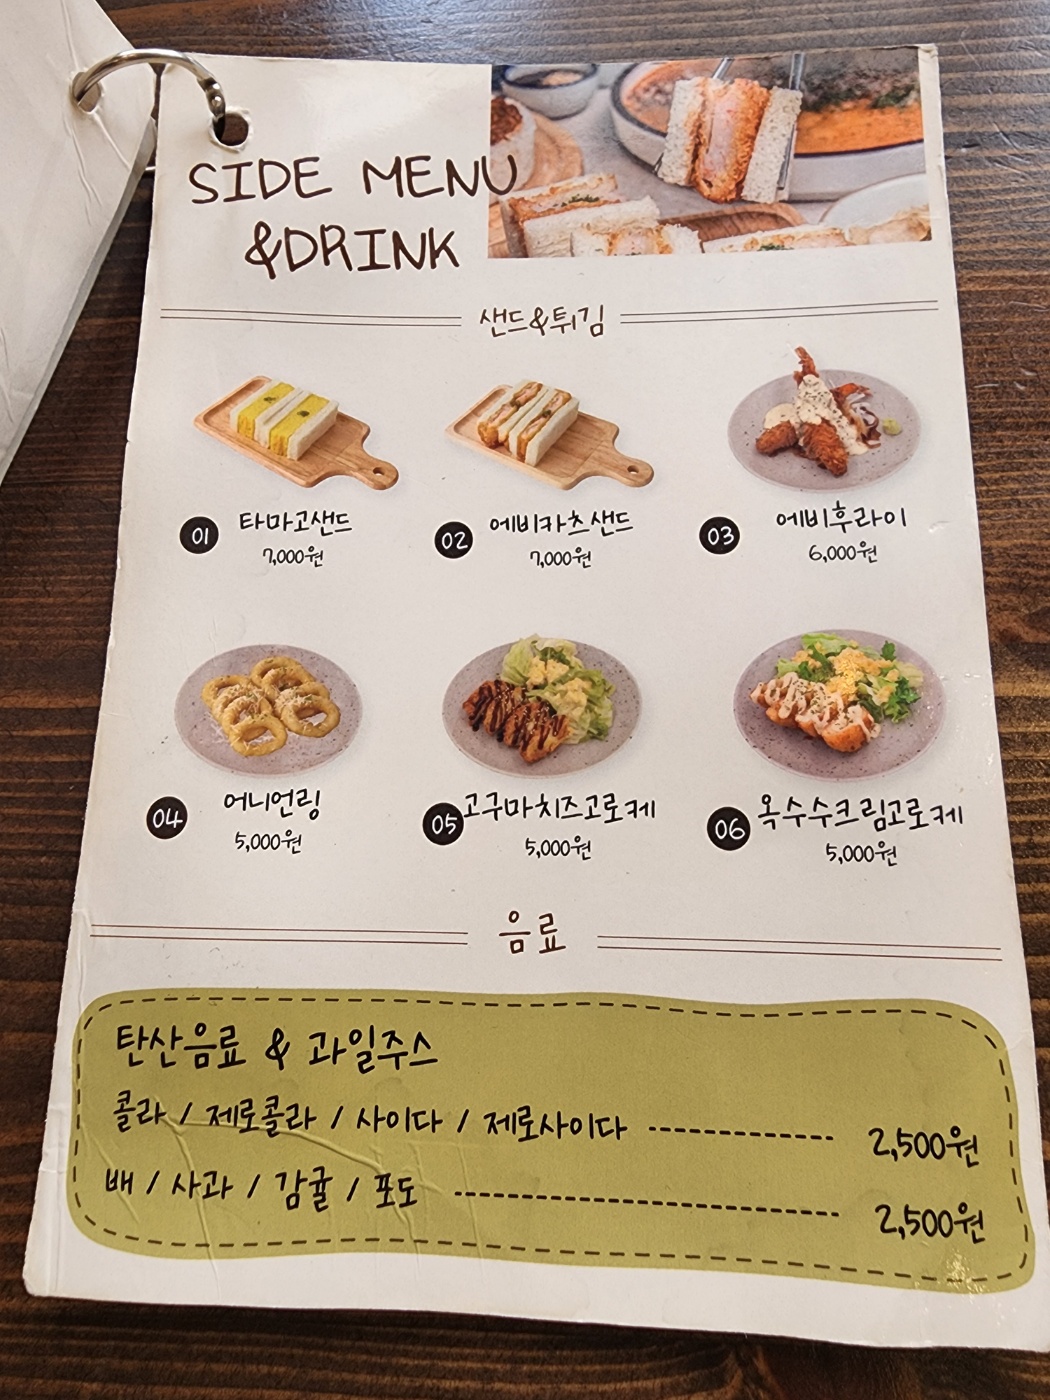 SIDE MENU
&DRINK
샌드&튀김
01 타마고샌드
7,000원
02 에비카츠샌드
7,000원
03 에비후라이
6,000원
04 어니언링
5,000원
05 고구마치즈고로케
5,000원
06 옥수수크림고로케
5,000원
음료
탄산음료 & 과일주스
콜라 / 제로콜라 / 사이다 / 제로사이다 ---------------- 2,500원
배 / 사과 / 감귤 / 포도 ---------------------------------- 2,500원